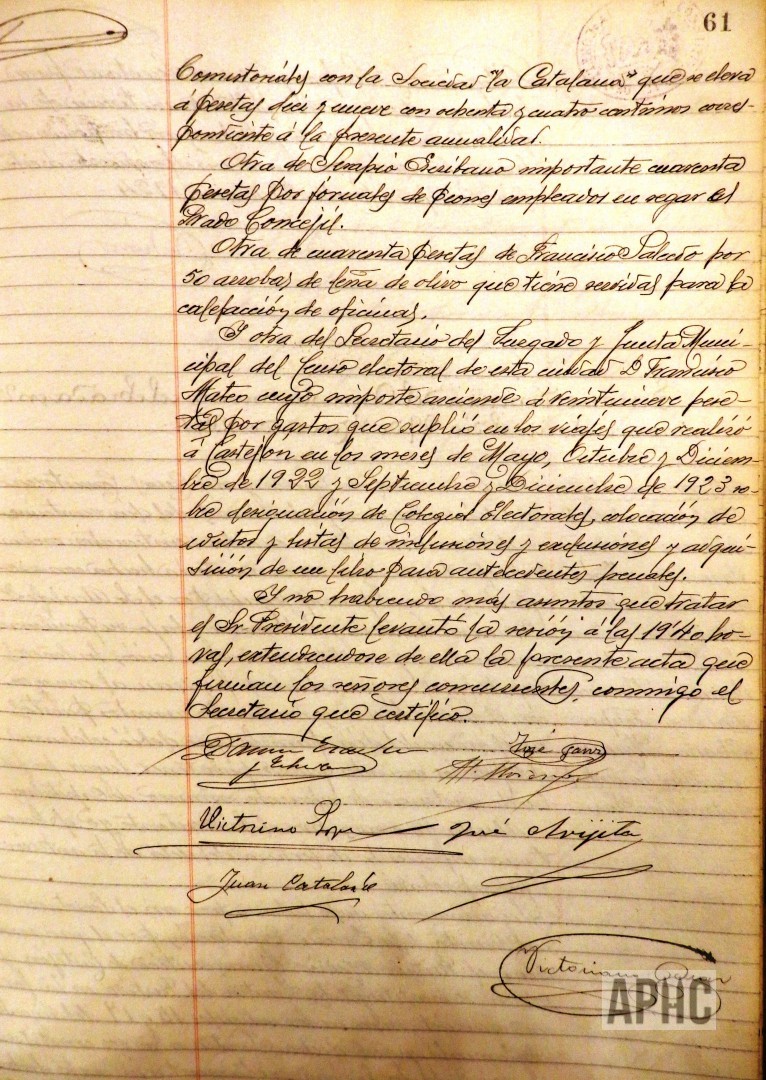 61
Consistoriales con la Sociedad "la Catalana" que se eleva
á pesetas diez y nueve con ochenta y cuatro centimos corres-
pondiente á la presente anualidad.
Otra de Serapio Escribano importante cuarenta
pesetas por jornales de peones empleados en regar el
Prado Concejil.
Otra de cuarenta pesetas de Francisco Salcedo por
50 arrobas de leña de olivo que tiene servidas para la
calefacción de oficinas.
Y otra del Secretario del Juzgado y Junta Muni-
cipal del Censo electoral de esta ciudad D. Francisco
Mateo cuyo importe asciende á veintinueve pese-
tas por gastos que suplió en los viajes que realizó
á Castejon en los meses de Mayo, Octubre y Diciem-
bre de 1922 y Septiembre y Diciembre de 1923 so-
bre designación de Colegios Electorales, colocación de
edictos y listas de inclusiones y exclusiones y adqui-
sición de un libro para antecedentes penales.
Y no habiendo más asuntos que tratar
el Sr. Presidente levantó la sesión á las 19'40 ho-
ras, extendiendose de ella la presente acta que
firman los señores concurrentes, conmigo el
Secretario que certifico.
José Sanz
Victorino
José Arigita
Juan Catalán
Victoriano
APHC